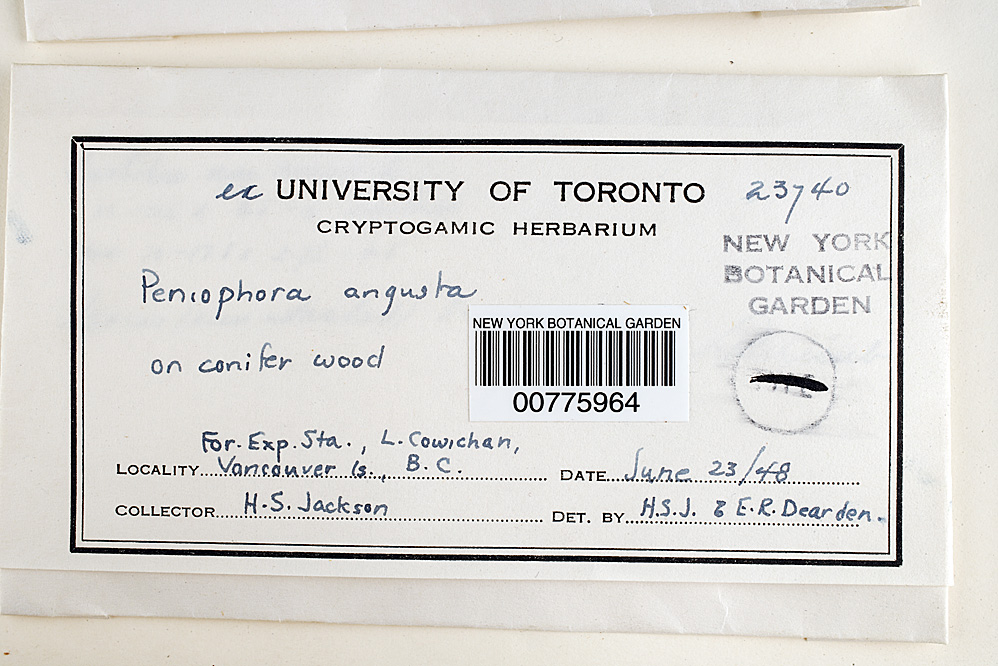 ex UNIVERSITY OF TORONTO 23740
CRYPTOGAMIC HERBARIUM
NEW YORK
BOTANICAL
GARDEN
Peniophora angusta
on conifer wood
NEW YORK BOTANICAL GARDEN
00775964
For. Exp. Sta., L. Cowichan,
LOCALITY Vancouver Is., B.C. DATE June 23/48
COLLECTOR H.S. Jackson DET. BY H.S.J. & E.R. Dearden.